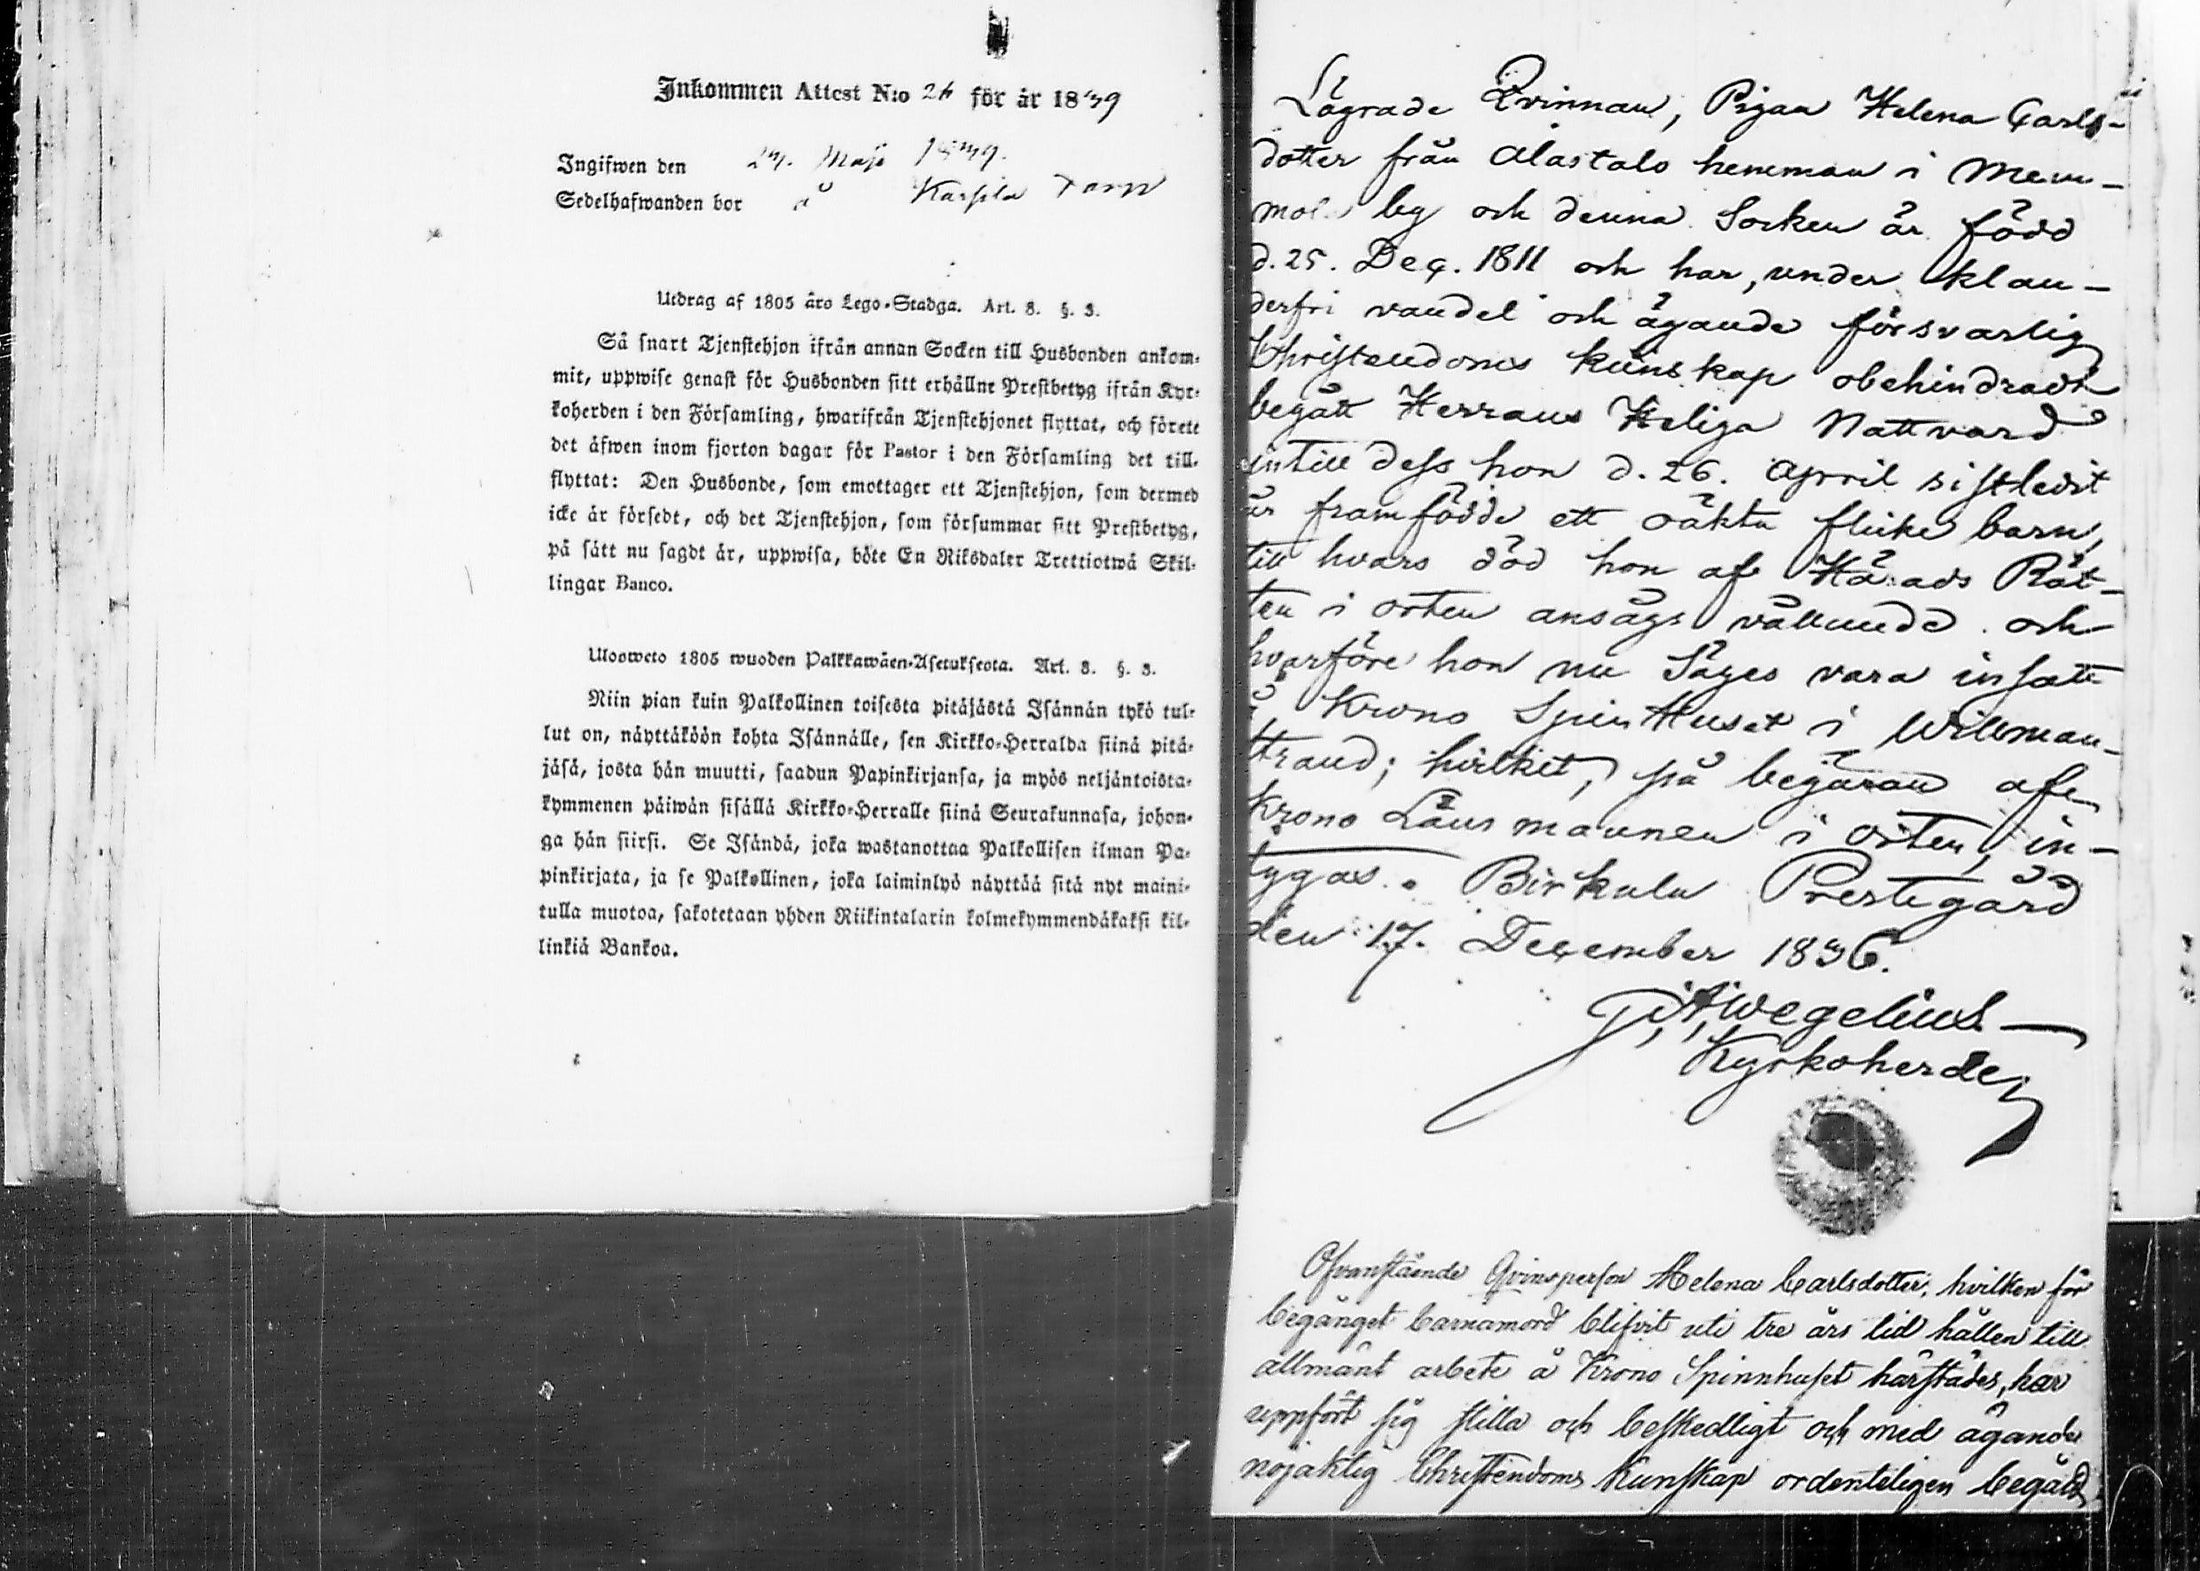 Inkommen Attest N:o 26 för år 1839
Ingifwen den 29. Maji 1839.
Sedelhafwanden bor å Karsila Torp
Utdrag af 1805 års Lego-Stadga. Art. 8. §. 3.
Så snart Tjenstehjon ifrån annan Socken till Husbonden ankom-
mit, uppwise genast för Husbonden sitt erhållne Prestbetyg ifrån Kyr-
koherden i den Församling, hwarifrån Tjenstehjonet flyttat, och förete
det äfwen inom fjorton dagar för Pastor i den Församling det till-
flyttat: Den Husbonde, som emottager ett Tjenstehjon, som dermed
icke är försedt, och det Tjenstehjon, som försummar sitt Prestbetyg,
på sätt nu sagdt är, uppwisa, böte En Riksdaler Trettiotwå Skil-
lingar Banco.
Ulosweto 1805 wuoden Palkkawäen-Asetuksesta. Art. 8. §. 3.
Niin pian kuin Palkollinen toisesta pitäjästä Isännän tykö tul-
lut on, näyttäköön kohta Isännälle, sen Kirkko-Herralda siinä pitä-
jäsä, josta hän muutti, saadun Papinkirjansa, ja myös neljäntoista-
kymmenen päiwän sisällä Kirkko-Herralle siinä Seurakunnasa, johon-
ga hän siirsi. Se Isändä, joka wastanottaa Palkollisen ilman Pa-
pinkirjata, ja se Palkollinen, joka laiminlyö näyttää sitä nyt maini-
tulla muotoa, sakotetaan yhden Riikintalarin kolmekymmendäkaksi kil-
linkiä Bankoa.
Lägrade Qvinnan, Pigan Helena Carls-
dotter från Alastalo hemman i Mem-
mola by och denna Socken är född
d. 25. Dec. 1811 och har, under klan-
derfri vandel och ägande försvarlig
Christendoms kunskap obehindradt
begått Herrans Heliga Nattvard
intill dess hon d. 26. April sistledit
år framfödde ett oäkta flicke barn,
till hvars död hon af Härads Rät-
ten i orten ansågs vållande och
hvarföre hon nu säges vara insatt
å Krono Spin Huset i Willman-
strand; hvilket, på begäran af
Krono Länsmannen i orten, in-
tygas. Birkala Prestegård
den 17. December 1836.
G. A. Wegelius
Kyrkoherde
Ofvanstående Qvinsperson Helena Carlsdotter, hvilken för
begånget barnamord blifvit uti tre års tid hållen till
allmänt arbete å Krono Spinnhuset härstädes, har
uppfört sig stilla och beskedligt och med ägande
nöjaktig Christendoms kunskap ordenteligen begådt